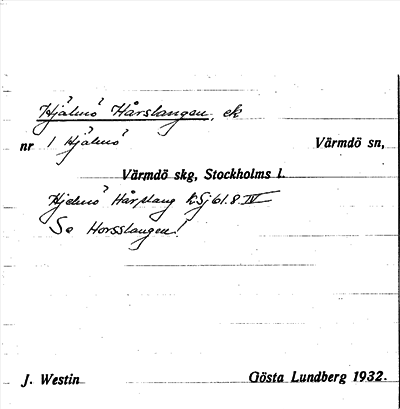 Hjälmö Hårslangen, ek
nr 1 Hjälmö Värmdö sn,
Värmdö skg, Stockholms l.
Hjelmö Hårslang 61.8 IV
Se Horsslangen!
J. Westin Gösta Lundberg 1932.